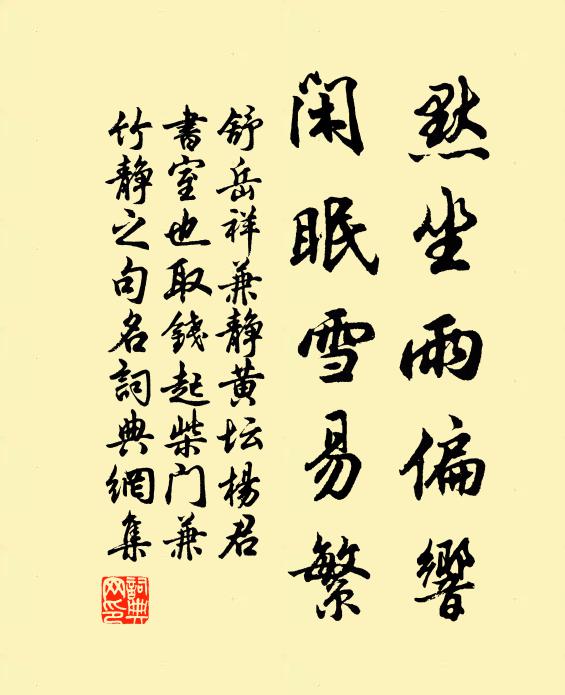 默坐雨偏響
閑眠雪易繁
舒岳祥兼静黄坛楊君
書室也取錢起柴门兼
竹静之句名詞典網集